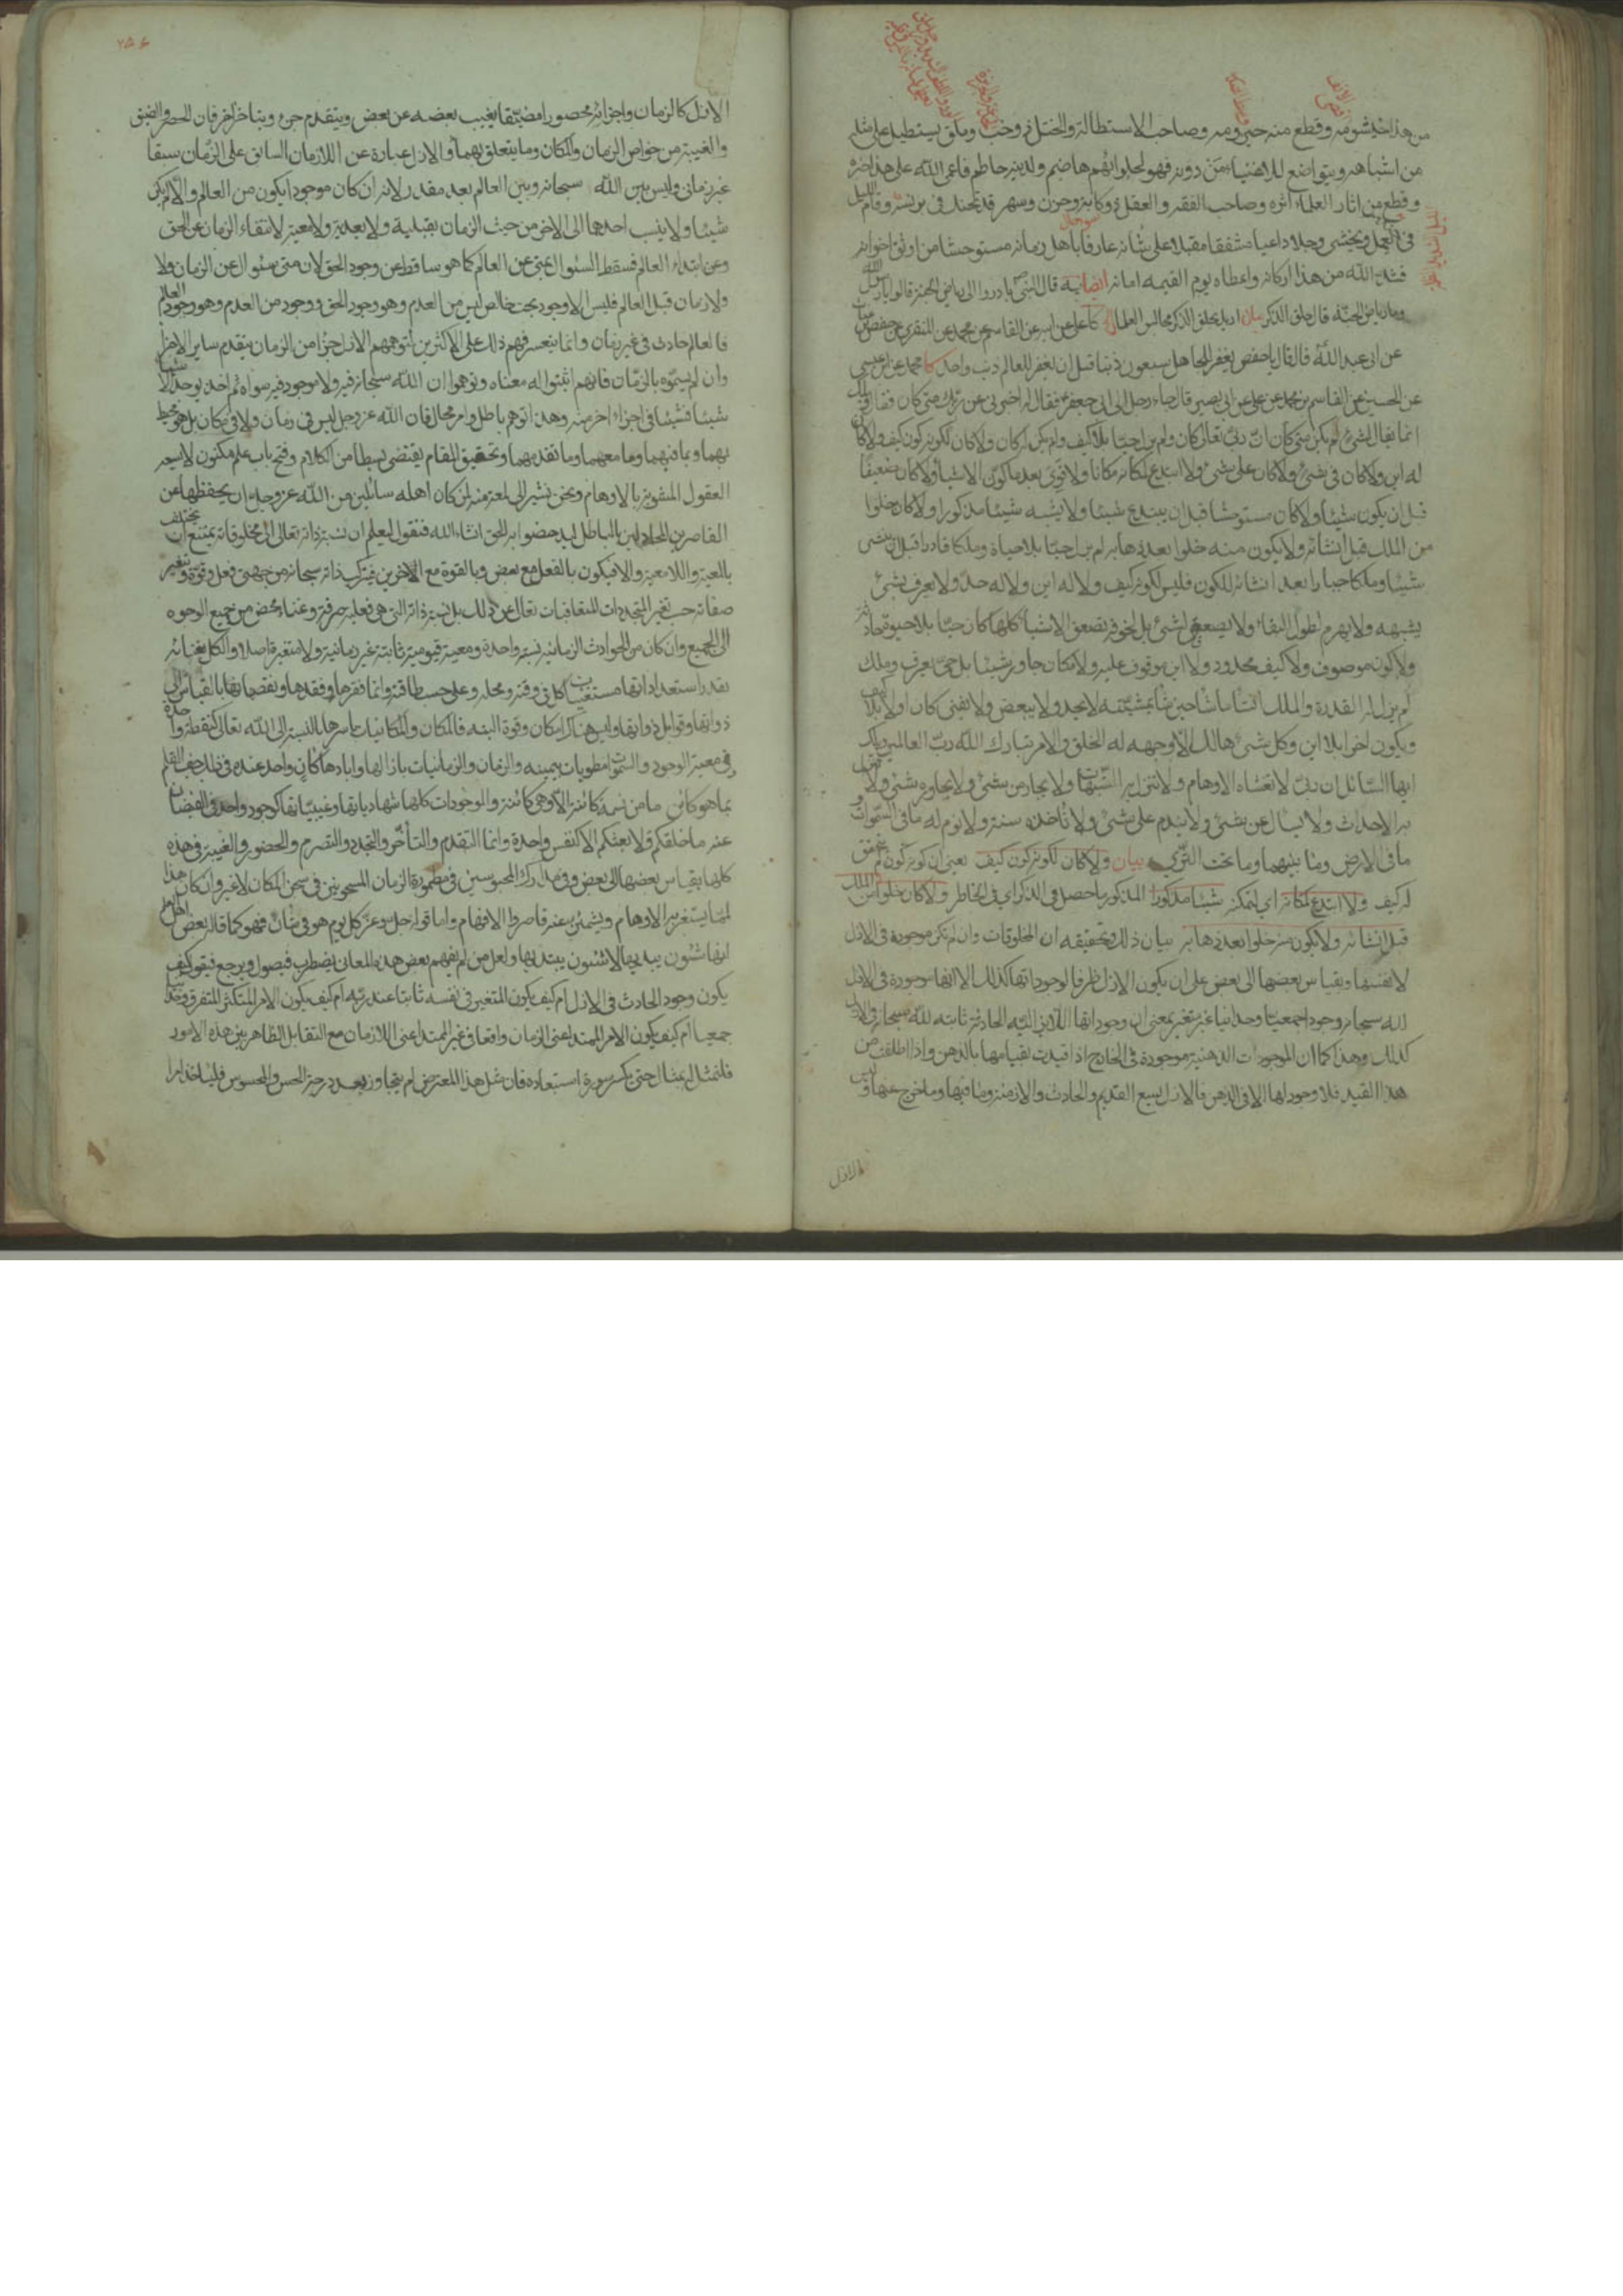 من هذا خيشومه وقطع منه حيزومه وصاحب الاستطالة والختل ذو خب وملق يستطيل على مثله
من اشباهه ويتواضع للاغنياء من دونه فهو لحلوائهم هاضم ولدينه حاطم فاعمى الله على هذا خبره
وقطع من اثار العلماء اثره وصاحب الفقه والعقل ذو كابة وحزن وسهر قد تحنك في برنسه وقام الليل
في حندسه يعمل ويخشى وجلا داعيا مشفقا مقبلا على شانه عارفا باهل زمانه مستوحشا من اوثق اخوانه
فشد الله من هذا اركانه واعطاه يوم القيمه امانه قال النبي ص بادروا الى رياض الجنة قالوا يا رسول الله
وما رياض الجنة قال حلق الذكر بيان اريد بحلق الذكر مجالس العلماء كا علي عن ابيه عن القاسم بن محمد عن المنقري عن حفص بن غياث
عن ابي عبد الله ع قال قال يا حفص يغفر للجاهل سبعون ذنبا قبل ان يغفر للعالم ذنب واحد كا محمد عن ابن عيسى
عن الحسين عن القاسم بن محمد عن علي عن ابي بصير قال جاء رجل الى ابي جعفر ع فقال له اخبرني عن ربك متى كان فقال ويلك
انما يقال لشيء لم يكن متى كان ان ربي تعالى كان ولم يزل حيا بلا كيف ولم يكن له كان ولا كان لكونه كون كيف ولا كان
له اين ولا كان في شيء ولا كان على شيء ولا ابتدع لمكانه مكانا ولا قوي بعد ما كون الاشياء ولا كان ضعيفا
قبل ان يكون شيئا ولا كان مستوحشا قبل ان يبتدع شيئا ولا يشبه شيئا مذكورا ولا كان خلوا
من الملك قبل انشائه ولا يكون منه خلوا بعد ذهابه لم يزل حيا بلا حياة وملكا قادرا قبل ان ينشئ
شيئا وملكا جبارا بعد انشائه للكون فليس لكونه كيف ولا له اين ولا له حد ولا يعرف بشيء
يشبهه ولا يهرم لطول البقاء ولا يصعق لشيء بل لخوفه تصعق الاشياء كلها كان حيا بلا حيوة حادثة
ولا كون موصوف ولا كيف محدود ولا اين موقوف عليه ولا مكان جاور شيئا بل حي يعرف وملك
لم يزل له القدرة والملك انشأ ما شاء حين شاء بمشيته لا يحد ولا يبعض ولا يفنى كان اولا بلا كيف
ويكون اخرا بلا اين وكل شيء هالك الا وجهه له الخلق والامر تبارك الله رب العالمين ويلك
ايها السائل ان ربي لا تغشاه الاوهام ولا تنزل به الشبهات ولا يحار من شيء ولا يجاوره شيء ولا تنزل
به الاحداث ولا يسال عن شيء ولا يندم على شيء ولا تأخذه سنة ولا نوم له ما في السموات و
ما في الارض وما بينهما وما تحت الثرى بيان ولا كان لكونه كون كيف يعني ان كونه كون لم يتحقق
له كيف ولا ابتدع لمكانه اي لتمكنه شيئا مذكورا المذكور ما حصل في الذكر اي في الخاطر ولا كان خلوا من الملك
قبل انشائه ولا يكون منه خلوا بعد ذهابه بيان ذلك وتحقيقه ان المخلوقات وان لم تكن موجودة في الازل
لانفسها وبقياس بعضها الى بعض على ان يكون الازل ظرفا لوجوداتها كذلك الا انها موجودة في الازل
لله سبحانه وجودا جمعيا وحدانيا غير متغير بمعنى ان وجوداتها اللايزالية الحادثة ثابتة لله سبحانه في الازل
كذلك وهذا كما ان الموجودات الذهنية موجودة في الخارج اذا قيدت بقيامها بالذهن واذا اطلقت من
هذا القيد فلا وجود لها الا في الذهن فالازل يسع القديم والحادث والازمنة وما فيها وما خرج عنها وليس
الازل
٢٥٤
الازل كالزمان واجزائه محصورا مضيقا يغيب بعضه عن بعض ويتقدم جزء ويتاخر اخر فان الحصر والضيق
والغيبة من خواص الزمان والمكان وما يتعلق بهما والازل عبارة عن اللازمان السابق على الزمان سبقا
غير زماني وليس بين الله سبحانه وبين العالم بعد مقدر لانه ان كان موجودا يكون من العالم والا لم يكن
شيئا ولا ينسب احدهما الى الاخر من حيث الزمان بقبلية ولا بعدية ولا معية لانتفاء الزمان عن الحق
وعن ابتداء العالم فسقط السؤال بمتى عن العالم كما هو ساقط عن وجود الحق لان متى سؤال عن الزمان ولا
ولا زمان قبل العالم فليس الا وجود بحت خالص ليس من العدم وهو وجود الحق ووجود من العدم وهو وجود العالم
فالعالم حادث في غير زمان وانما يتعسر فهم ذلك على الاكثرين لتوهمهم الازل جزءا من الزمان يتقدم ساير الاجزاء
وان لم يسموه بالزمان فانهم اثبتوا له معناه وتوهموا ان الله سبحانه فيه ولا موجود فيه سواه ثم اخذ يوجد الاشياء
شيئا فشيئا في اجزاء اخر منه وهذا توهم باطل وامر محال فان الله عز وجل ليس في زمان ولا في مكان بل هو محيط
بهما وبما فيهما وما معهما وما تقدمهما وتحقيق المقام يقتضي بسطا من الكلام وفتح باب علم مكنون لا يسعه
العقول المشوبة بالاوهام ونحن نشير الى لمعة منه لمن كان اهله سائلين من الله عز وجل ان يحفظها عن
القاصرين المجادلين بالباطل ليدحضوا به الحق انشاء الله فنقول ليعلم ان نسبة ذاته تعالى الى مخلوقاته يمتنع ان يختلف
بالمعية واللامعية والا فيكون بالفعل مع بعض وبالقوة مع الاخرين فيتركب ذاته سبحانه من جهتي فعل وقوة وتتغير
صفاته حسب تغير المتجددات المتعاقبات تعالى عن ذلك بل نسبة ذاته التي هي فعلية صرفة وغناء محض من جميع الوجوه
الى الجميع وان كان من الحوادث الزمانية نسبة واحدة ومعية قيومية ثابتة غير زمانية ولا متغيرة اصلا والكل بغنائه
بقدر استعداداتها مستغنيات كل في وقته ومحله وعلى حسب طاقته وانما فقرها وفقدها ونقصها بالقياس الى
ذواتها وقوابل ذواتها وليس هناك امكان وقوة البتة فالمكان والمكانيات باسرها بالنسبة الى الله تعالى كنقطة واحدة
في معية الوجود والسموات مطويات بيمينه والزمان والزمانيات بازالها وابادها كان واحد عنده في ذلك جف القلم
بما هو كائن ما من نسمة كائنة الا وهي كائنة والموجودات كلها شهادياتها وغيبياتها كموجود واحد في الفيضان
عنه ما خلقكم ولا بعثكم الا كنفس واحدة وانما التقدم والتأخر والتجدد والتصرم والحضور والغيبة في هذه
كلها بقياس بعضها الى بعض وفي مدارك المحبوسين في مطمورة الزمان المسجونين في سجن المكان لا غير وان كان هذا
لمما يستغربه الاوهام ويشمئز عنه قاصروا الافهام واما قوله جل وعز كل يوم هو في شان فهو كما قاله بعض اهل العلم
انها شئون يبديها لا شئون يبتديها ولعل من لم يفهم بعض هذه المعاني يضطرب فيصول ويرجع فيقول كيف
يكون وجود الحادث في الازل ام كيف يكون المتغير في نفسه ثابتا عند ربه ام كيف يكون الامر المتكثر المتفرق وحدانيا
جمعيا ام كيف يكون الامر الممتد اعني الزمان واقعا في غير الممتد اعني اللازمان مع التقابل الظاهر بين هذه الامور
فلنمثل له بمثال حتى يكسر سورة استبعاده فان مثل هذا المعترض لم يتجاوز بعد درجة الحس والمحسوس فلياخذ امرا